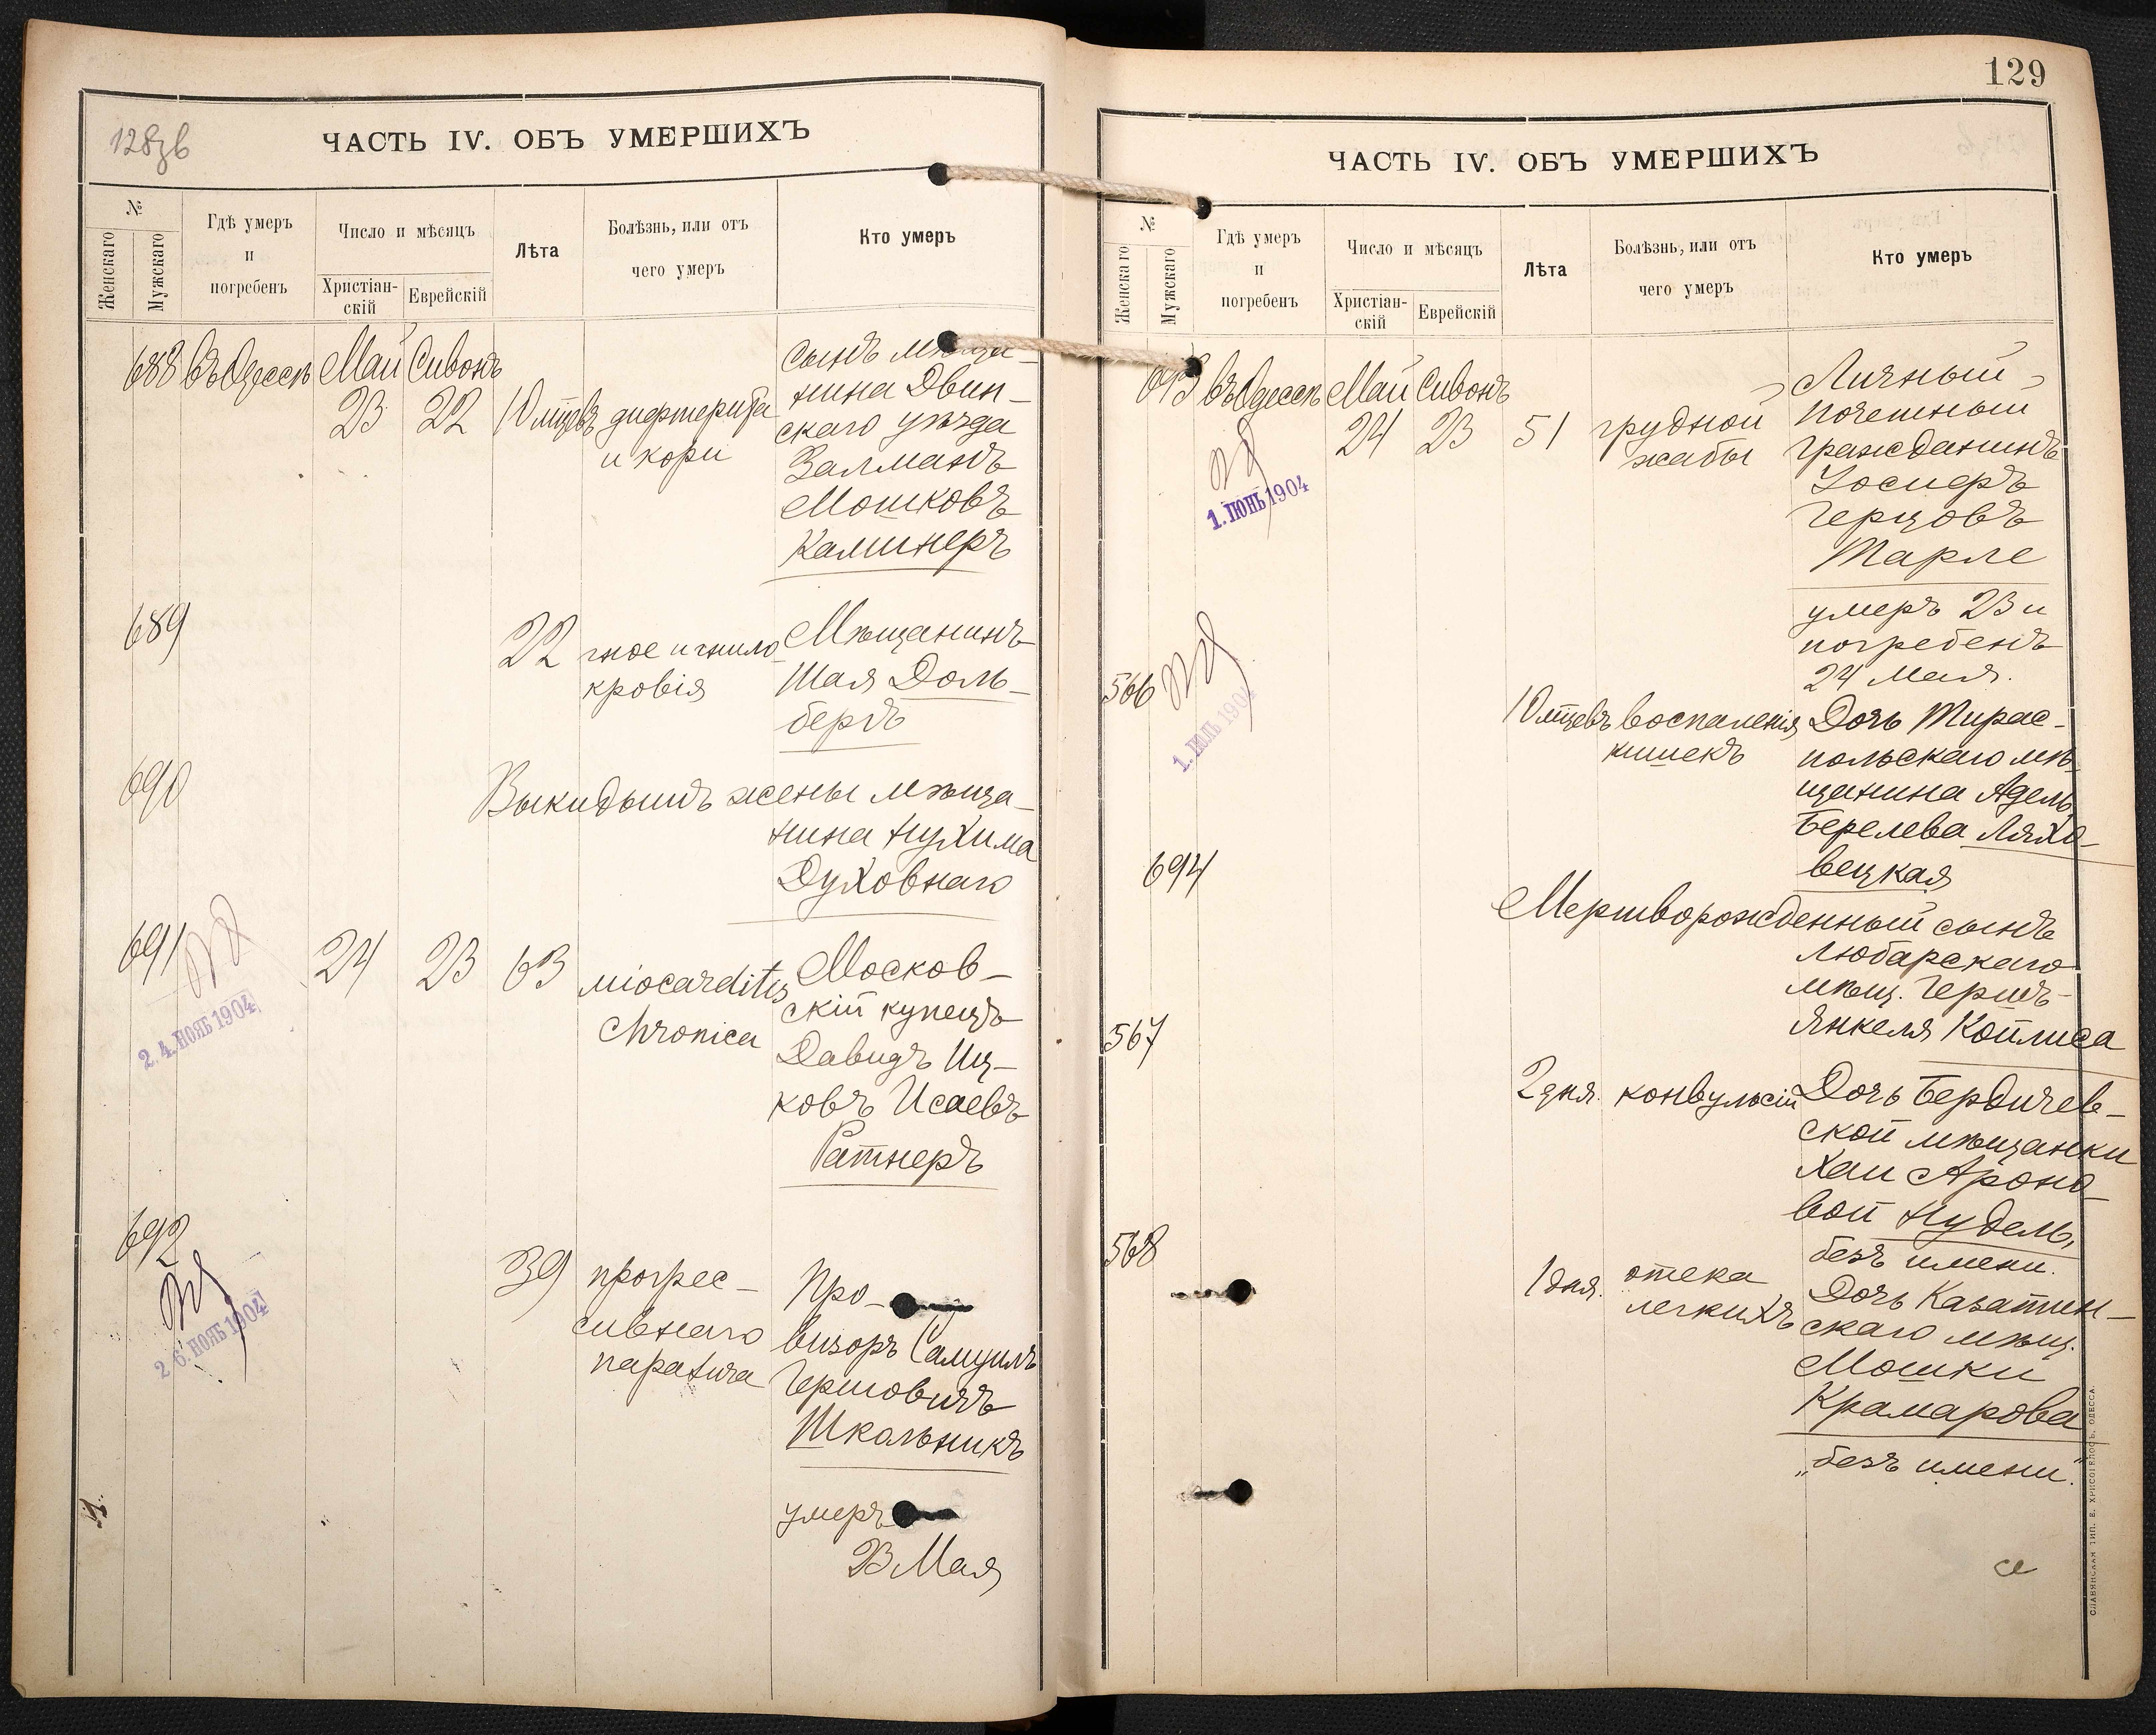 128зв
ЧАСТЬ IV. ОБЪ УМЕРШИХЪ
№
Женскаго
Мужскаго
Гдѣ умеръ
и
погребенъ
Число и мѣсяцъ
Христіан-
скій
Еврейскій
Лѣта
Болѣзнь, или отъ
чего умеръ
Кто умеръ
688 въ Одессѣ Май Сивонъ
23 22 10 мцевъ дифтерита
и кори
сынъ мѣща-
нина Двин-
скаго уѣзда
Залманъ
Мошковъ
Каминеръ
689
22 гное и гнило
кровія
Мѣщанинъ
Шая Доль-
бергъ
690
Выкидышъ жены мѣща-
нина Нухима
Духовнаго
691
24 23 63 miocarditis
chronica
Москов-
скій купецъ
Давидъ Иц-
ковъ Исаевъ
Ратнеръ
2. 4. НОЯБ 1904
692
39 прогрес-
сивнаго
паралича
Про-
визоръ Самуилъ
Гершовичъ
Школьникъ
2 6. НОЯБ 1904
умеръ
23 Мая
129
ЧАСТЬ IV. ОБЪ УМЕРШИХЪ
№
Женскаго
Мужскаго
Гдѣ умеръ
и
погребенъ
Число и мѣсяцъ
Христіан-
скій
Еврейскій
Лѣта
Болѣзнь, или отъ
чего умеръ
Кто умеръ
693 въ Одессѣ Май Сивонъ
24 23 51 грудной
жабы
Личный
почетный
гражданинъ
Іосифъ
Герцовъ
Тарле
1. ІЮНЬ 1904
умеръ 23 и
погребенъ
24 Мая.
566
1. ІЮЛЬ 1904
10 мцевъ воспаленія
кишекъ
Дочь Тирас-
польскаго мѣ-
щанина Адель
Берелева Ляхо-
вецкая
694
Мертворожденный сынъ
Любарскаго
мѣщ. Гершъ-
Янкеля Койлиса
567
2 дня. конвульсій
Дочь Бердичев-
ской мѣщанки
Хаи Ароно-
вой Нудель,
безъ имени.
568
1 дня. отека
легкихъ
Дочь Казатин-
скаго мѣщ.
Мошки
Крамарова
„безъ имени“.
СЛАВЯНСКАЯ ТИП. Е. ХРИСОГЕЛОСЪ, ОДЕССА.